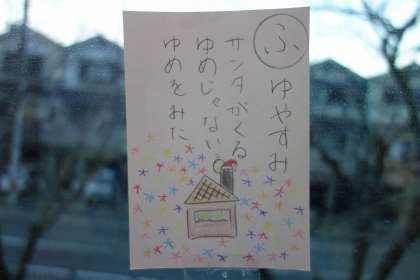 ふゆやすみ
サンタがくる
ゆめじゃない
ゆめをみた